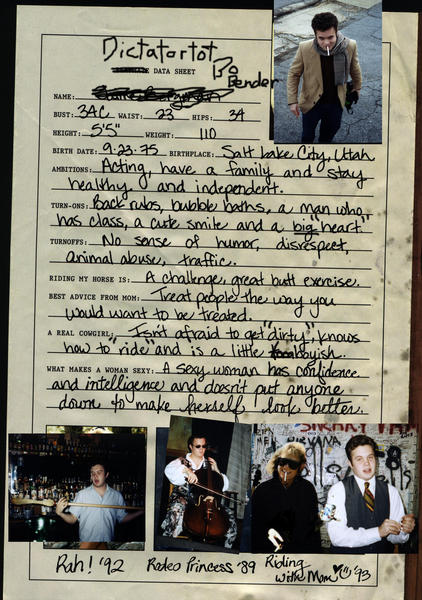 Dictatortot
Bo
Bender
DATA SHEET
NAME:
BUST: 34C WAIST: 23 HIPS: 34
HEIGHT: 5'5" WEIGHT: 110
BIRTH DATE: 9-23-75 BIRTHPLACE: Salt Lake City, Utah
AMBITIONS: Acting, have a family and stay
healthy and independent.
TURN-ONS: Back rubs, bubble baths, a man who
has class, a cute smile and a big "heart"
TURNOFFS: No sense of humor, disrespect,
animal abuse, traffic.
RIDING MY HORSE IS: A challenge, great butt exercise.
BEST ADVICE FROM MOM: Treat people the way you
would want to be treated.
A REAL COWGIRL: Isn't afraid to get "dirty", knows
how to "ride" and is a little boyish.
WHAT MAKES A WOMAN SEXY: A sexy woman has confidence
and intelligence and doesn't put anyone
down to make herself look better.
NIRVANA
Rah! '92
Rodeo Princess '89
Riding
with Mom '93